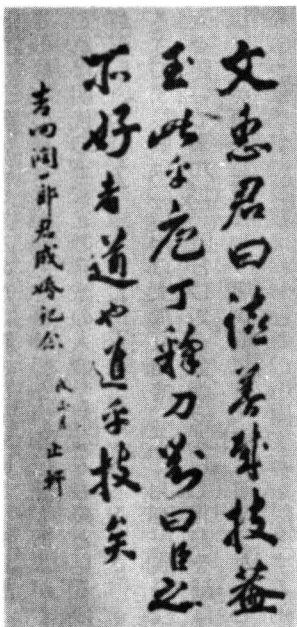 文惠君曰譆善哉技蓋
至此乎庖丁釋刀對曰臣之
所好者道也進乎技矣
吉田潤一郎君成婚記念
止軒